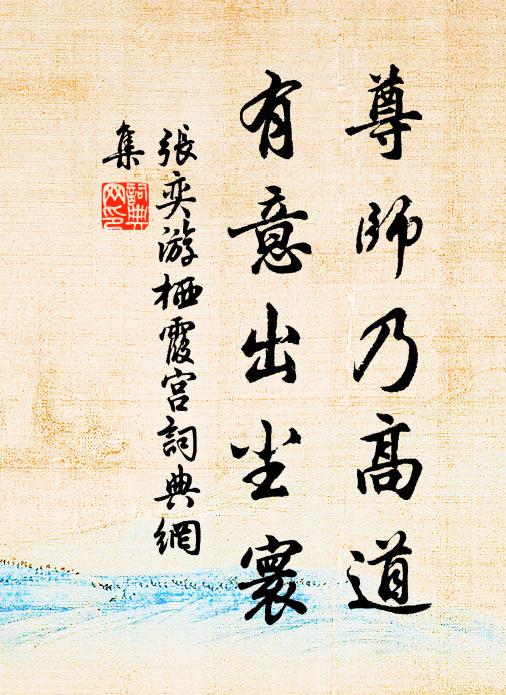 尊師乃高道
有意出尘寰
張奕游栖霞宫詞典網
集
詞典
网印